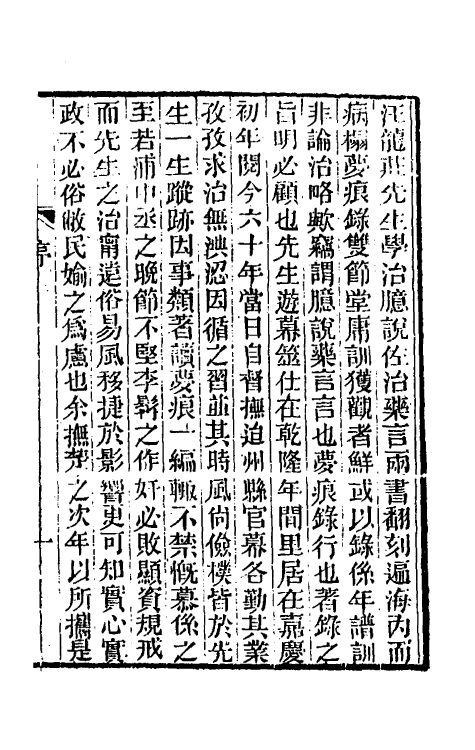 汪龍莊先生學治臆說佐治藥言兩書翻刻遍海內而
病榻夢痕錄雙節堂庸訓獲觀者鮮或以錄係年譜訓
非論治略歟竊謂臆說藥言言也夢痕錄行也著錄之
旨明必顧也先生遊幕筮仕在乾隆年間里居在嘉慶
初年閱今六十年當日自督撫迨州縣官幕各勤其業
孜孜求治無淟涊因循之習並其時風尚儉樸皆於先
生一生蹤跡因事類著讀夢痕一編輙不禁慨慕係之
至若浦中丞之晚節不堅李辥之作奸必敗顯資規戒
而先生之治甯遠俗易風移捷於影響吏可知實心實
政不必俗敝民媮之爲慮也余撫楚之次年以所攜是
序
一